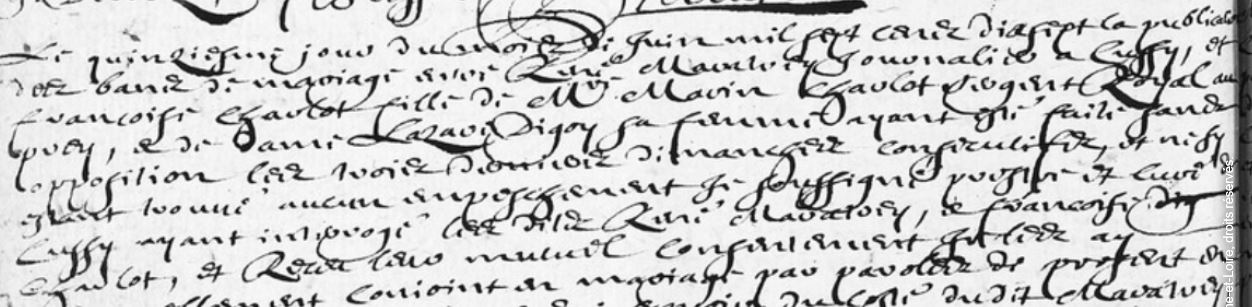 Le quinziesme jour du mois de Juin mil sept cens dix sept la publica
des bans de mariage entre René journalier a Lussy, et
francoise Charlot fille de Mre Marin Charlot sergent Royal au
et de Dame Lazare Digoy sa femme ayant esté faite sans
opposition les trois derniers dimanches consecutifs, et ne sy
estant trouvé aucun empeschement Je soussigné prestre et curé
Lussy ayant interrogé les dits René et francoise
Charlot, et Receu leur mutuel consentement Je les ay
conjoint en mariage par paroles de present en
du costé du dit
e-et-Loire, droits réservés